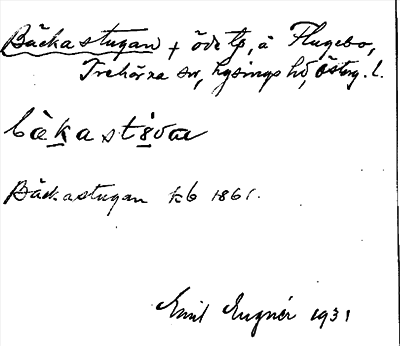 Bäckastugan + öde tp, å Flugebo,
Trehörna sn, Ydre hd, Österg. l.
bä̀kastúvan
Bäckastugan kb 1861.
Emil Eugnér 1931